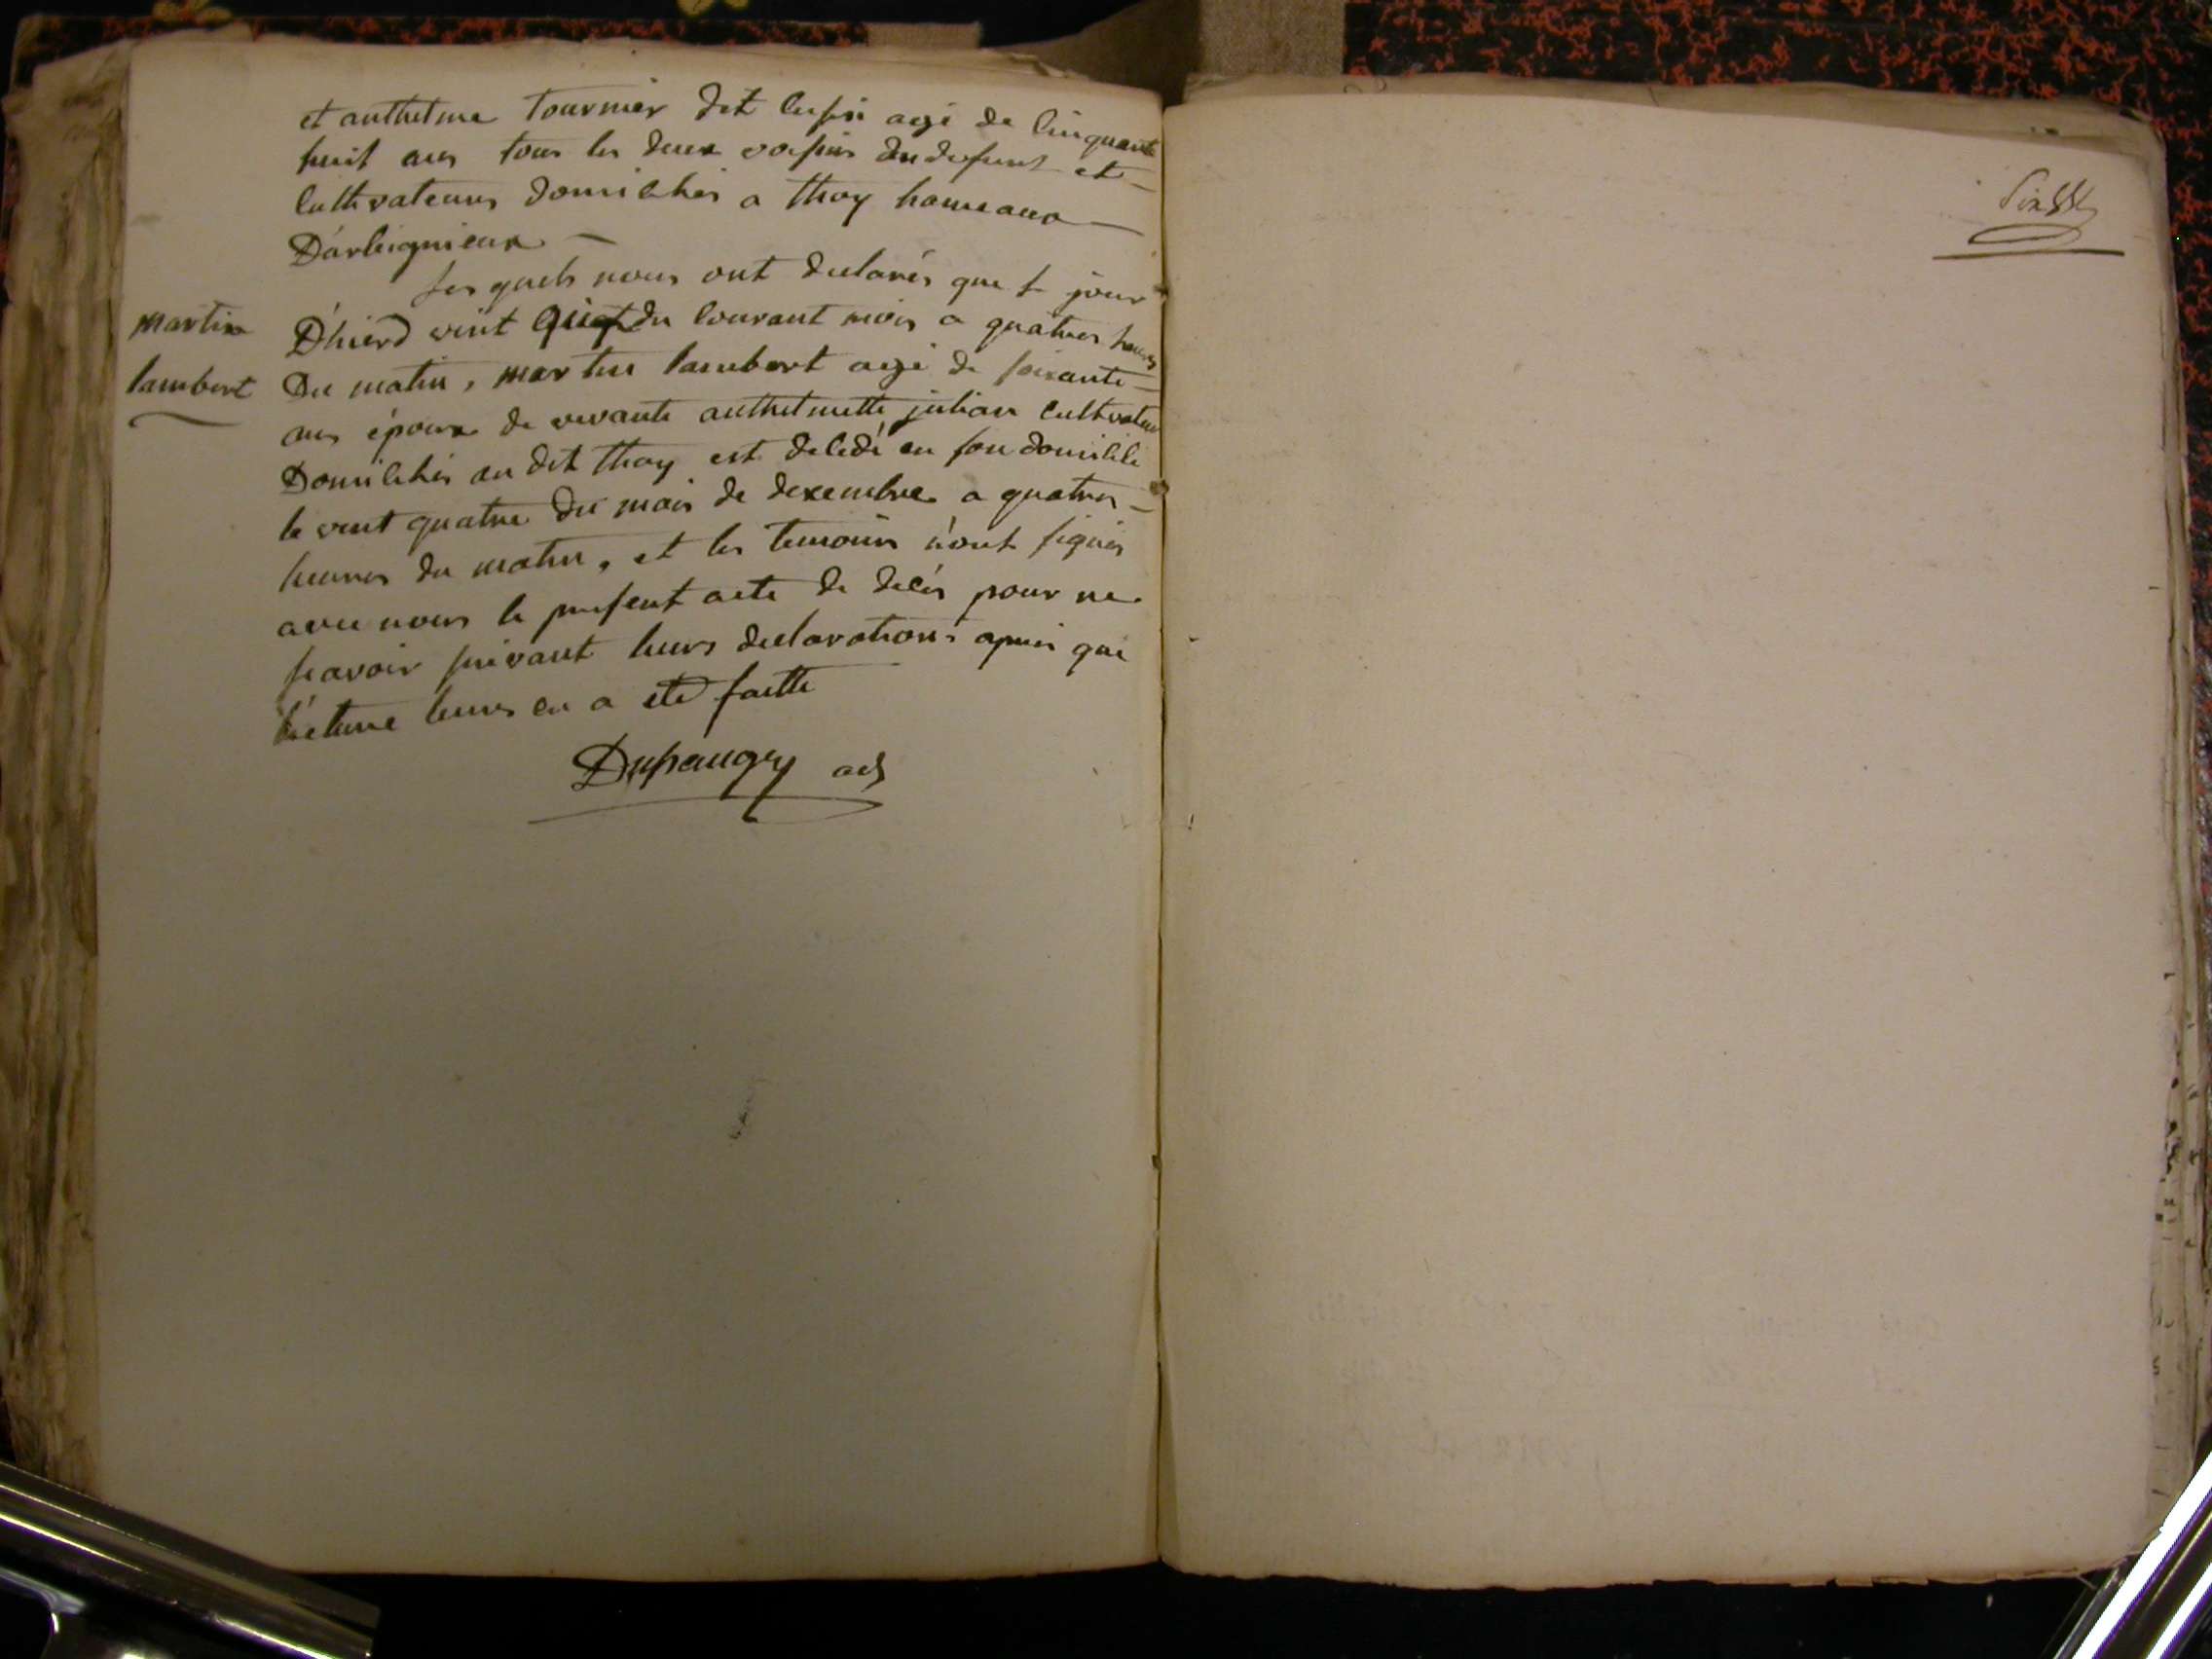 et anthelme tournier dit
agé de cinquante
huit ans tous les deux voisins du defunt et
cultivateurs domiciliés a thoy hameaux
D'arbignieux
Les quels nous ont declarés que le jour
D'hierd vint du courant mois a quatres heures
Du matin, martin lambert agé de soixante
ans époux de vivante anthelmette julian cultivateur
Domiciliés au dit thoy est decedé en son domicile
le vint quatre du mois de dexembre a quatres
heures du matin, et les temoins n'ont signés
avec nous le present acte de decés pour ne
scavoir suivant leurs declarations apres que
lecture leurs en a eté faitte
martin
lambert
Dupaugey adj